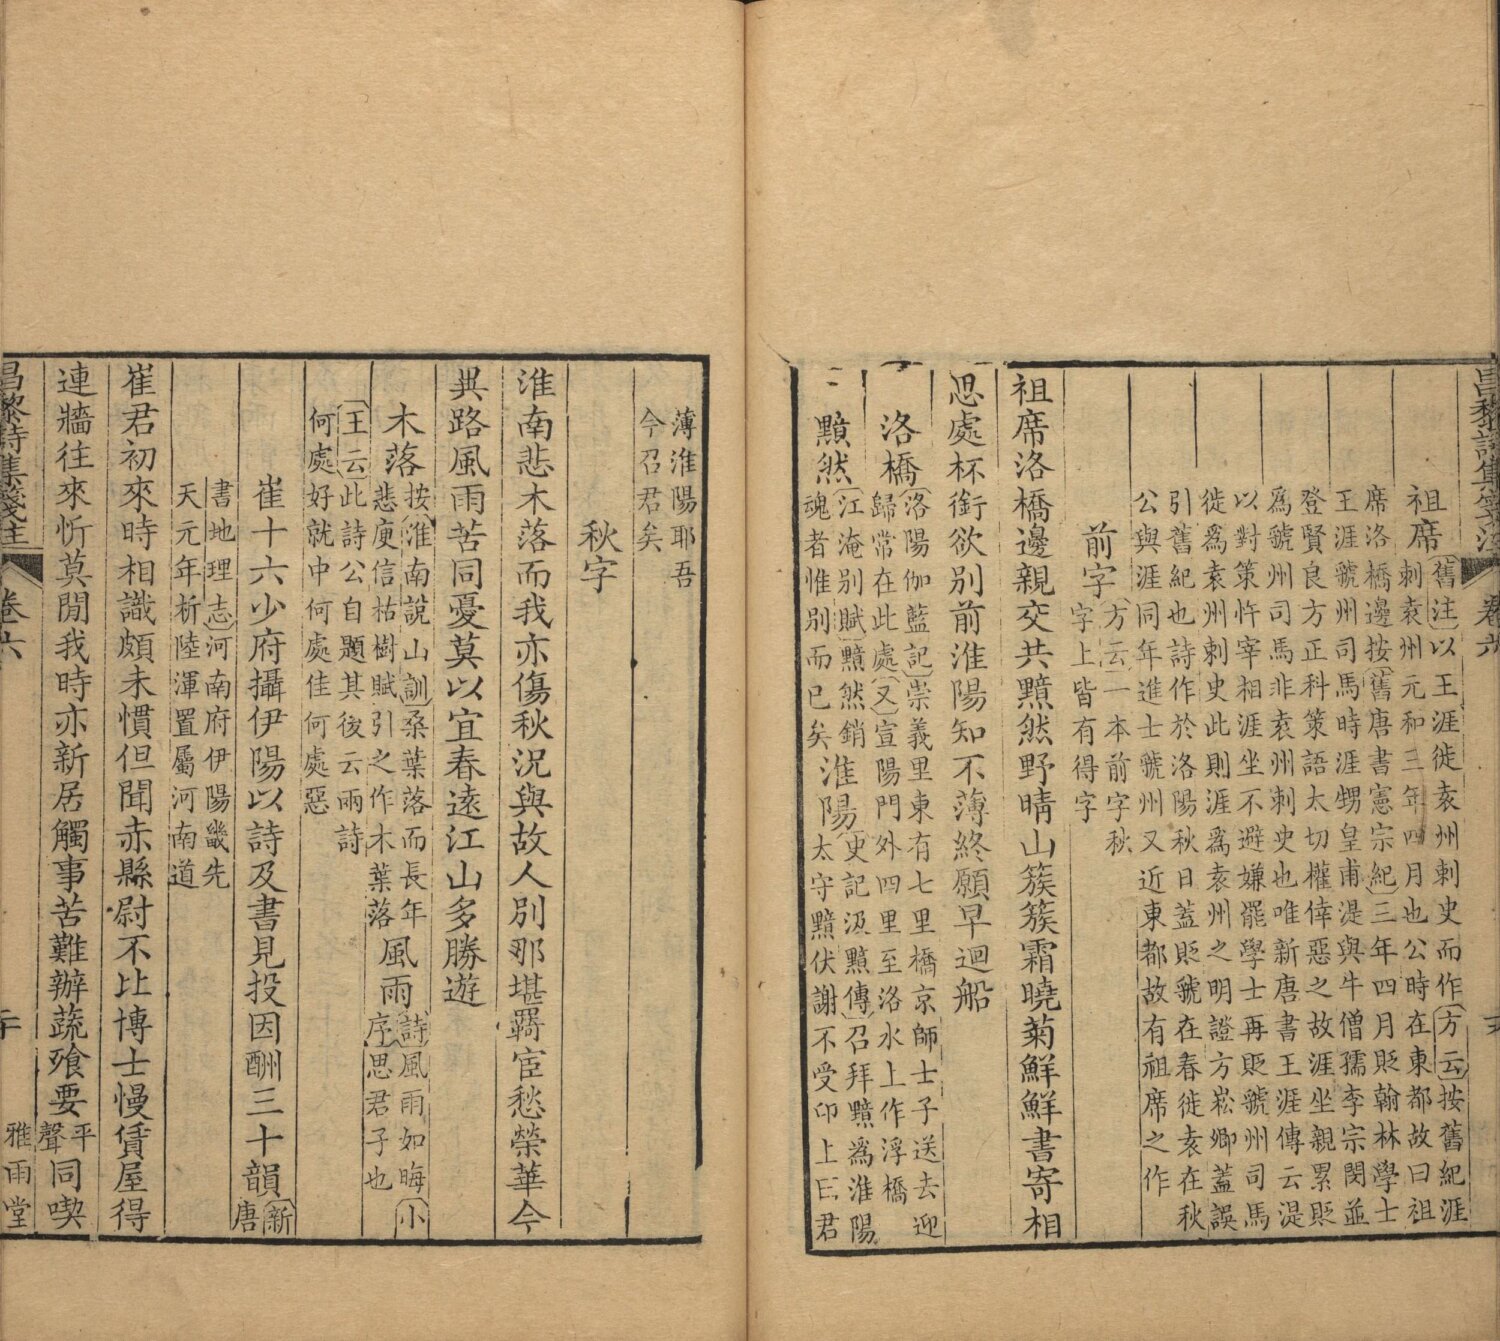 昌黎詩集箋注 卷六
祖席舊注以王涯徙袁州刺史而作方云按舊紀涯
刺袁州元和三年四月也公時在東都故曰祖
席洛橋邊按舊唐書憲宗紀三年四月貶翰林學士
王涯虢州司馬時涯甥皇甫湜與牛僧孺李宗閔並
登賢良方正科策語太切權倖惡之故涯坐親累貶
爲虢州司馬非袁州刺史也唯新唐書王涯傳云湜
以對策忤宰相涯坐不避嫌罷學士再貶虢州司馬
徙爲袁州刺史此則涯爲袁州之明證方崧卿蓋誤
引舊紀也詩作於洛陽秋日蓋貶虢在春徙袁在秋
公與涯同年進士虢州又近東都故有祖席之作
前字方云一本前字秋
字上皆有得字
祖席洛橋邊親交共黯然野晴山簇簇霜曉菊鮮鮮書寄相
思處杯銜欲別前淮陽知不薄終願早迴船
洛橋洛陽伽藍記崇義里東有七里橋京師士子送去迎
歸常在此處又宣陽門外四里至洛水上作浮橋
黯然江淹別賦黯然銷
魂者惟別而已矣淮陽史記汲黯傳召拜黯爲淮陽
太守黯伏謝不受印上曰君
薄淮陽耶吾
今召君矣
秋字
淮南悲木落而我亦傷秋況與故人別那堪羇宦愁榮華今
異路風雨苦同憂莫以宜春遠江山多勝遊
木落按淮南說山訓桑葉落而長年
悲庾信枯樹賦引之作木葉落風雨詩小
序風雨如晦
思君子也
王云此詩公自題其後云兩詩
何處好就中何處佳何處惡
崔十六少府攝伊陽以詩及書見投因酬三十韻新
唐
書地理志河南府伊陽畿先
天元年析陸渾置屬河南道
崔君初來時相識頗未慣但聞赤縣尉不比博士慢賃屋得
連牆往來忻莫間我時亦新居觸事苦難辦蔬飱要平
聲同喫
昌黎詩集箋注 卷六 雅雨堂